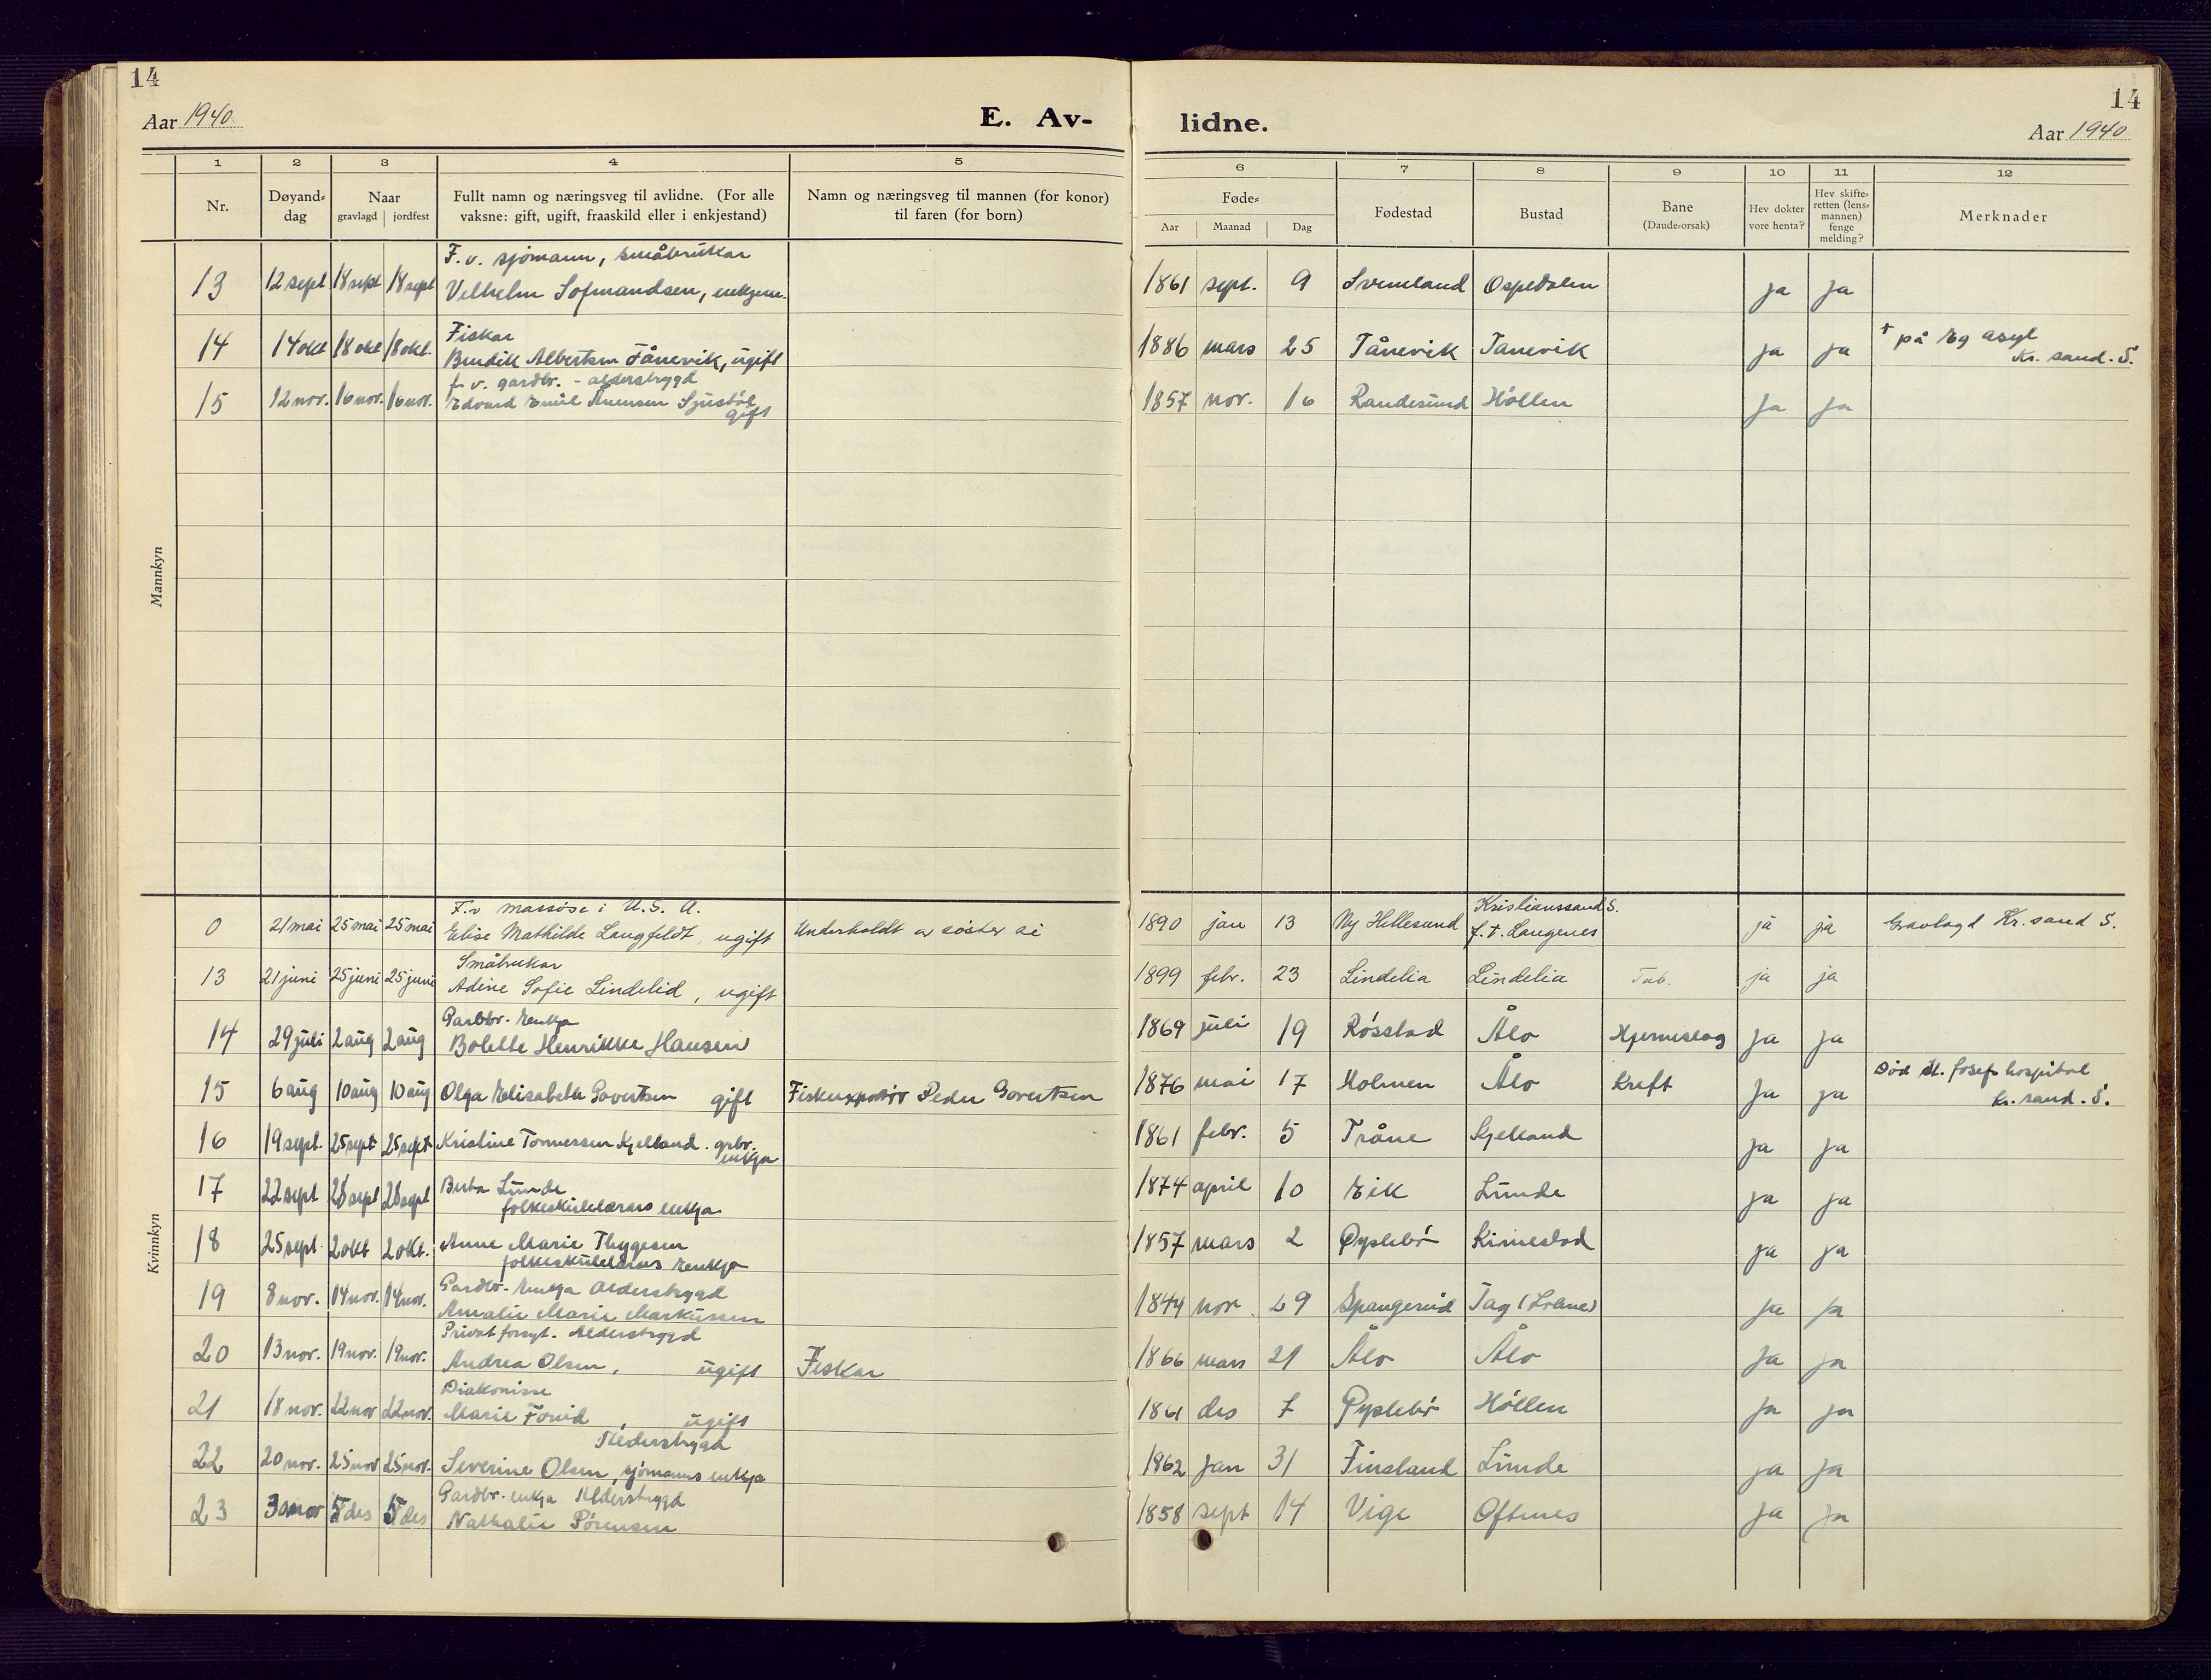 14
Aar 1940
E. Av-
lidne.
14
Aar 1940
1 2 3 4 5 6 7 8 9 10 11 12
Nr.
Døyand-dag
Naar
gravlagd jordfest
Fullt namn og næringsveg til avlidne. (For alle
vaksne: gift, ugift, fraaskild eller i enkjestand)
Namn og næringsveg til mannen (for konor)
til faren (for born)
Føde-
Aar Maanad Dag
Fødestad
Bustad
Bane
(Daude-orsak)
Hev dokter
vore henta?
Hev skifte-
retten (lens-
mannen)
fenge
melding?
Merknader
Mannkyn
F. v. sjømann, småbrukar
13 12 sept 18 sept 18 sept Vilhelm Sofmandsen, 1861 sept. 9 Sveneland Ospedalen ja ja
Fiskar
14 14 okt 18 okt 18 okt. Bendik Albertsen Tånevik, ugift 1886 mars 25 Tånevik Tanevik ja ja † på Eg asyl
Kr. sand. S.
f. v. gardbr. - alderstrygd
15 12 nov. 16 nov. 16 nov. Edvard Emil Ånensen 1857 nov. 16 Randesund Höllen ja ja
gift
Kvinnkyn
F.v massøse i U.S.A. Kristianssand S.
0 21 mai 25 mai 25 mai Elise Mathilde Langfeldt, ugift Underholdt av søster si 1890 jan 13 Ny Hellesund f. t. Langenes ja ja Gravlagd Kr. sand S.
Småbrukar
13 21 juni 25 juni 25 juni Adine Sofie Lindelid, ugift 1899 febr. 23 Lindelia Lindelia Tub. ja ja
Gardbr. enkja
14 29 juli 2 aug 2 aug Bolette Henrikke Hansen 1869 juli 19 Røsstad Ålo Hjerneslag ja ja
15 6 aug 10 aug 10 aug Olga Elisabeth Govertsen gift Fiskeexportør Peder Govertsen 1876 mai 17 Holmen Ålo Kreft ja ja Död St. Josefs hospital
Kr. sand. S.
16 19 sept. 25 sept 25 sept Kristine Tønnersen Kjelland. grbr. 1861 febr. 5 Tråne Kjelland ja ja
enkja
17 22 sept 28 sept 28 sept Berta Lunde 1874 april 10 Eik Lunde ja ja
folkeskulelærars enkja
18 25 sept 2 okt 2 okt. Anne Marie Thygesen 1857 mars 2 Øyslebö Kimestad ja ja
folkeskulelærars enkja
Gardbr. enkja Alderstrygd
19 8 nov. 14 nov. 14 nov. Amalie Marie Markussen 1844 nov 29 Spangereid Tag ja ja
Privat forsyt. Alderstrygd
20 13 nov. 19 nov. 19 nov. Andrea Olsen, ugift Fiskar 1866 mars 21 Ålo Ålo ja ja
Diakonisse
21 18 nov. 22 nov 22 nov. Marie Foneid, ugift 1861 des 7 Øyslebö Höllen ja ja
Alderstrygd
22 20 nov. 25 nov 25 nov. Severine Olsen, sjømanns enkja 1862 jan 31 Finsland Lunde ja ja
Gardbr. enkja Alderstrygd
23 30 nov 5 des 5 des Nathalie Sørensen 1858 sept 14 Vige Oftenes ja ja